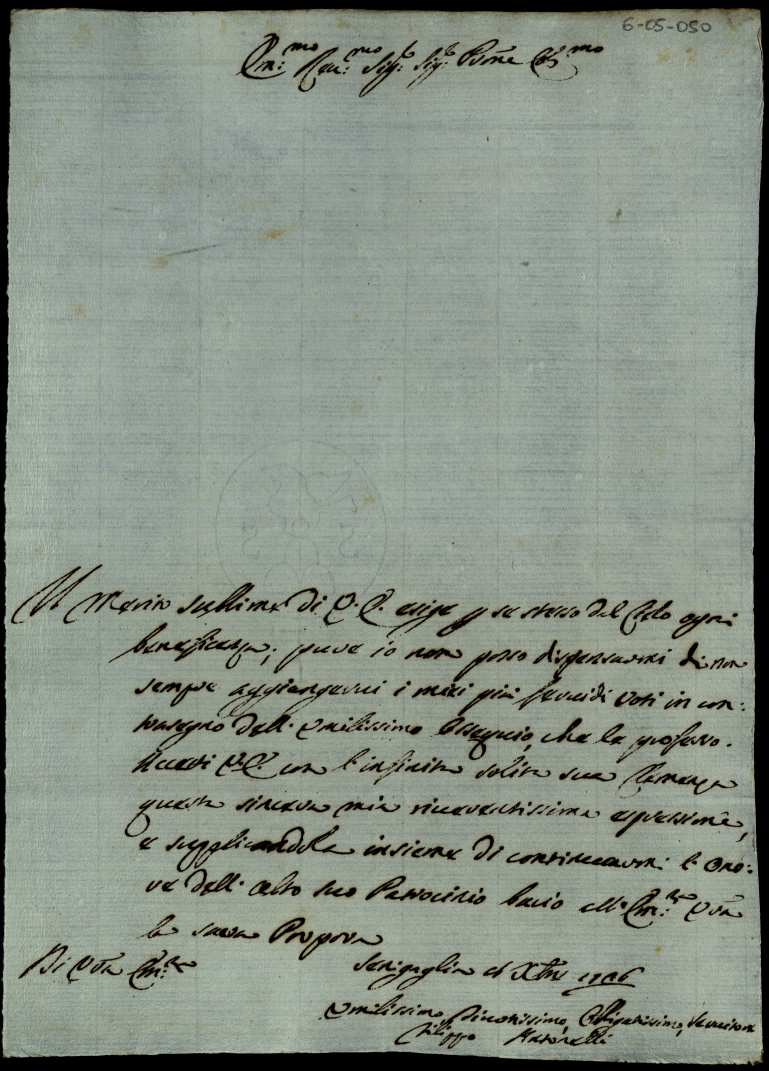 6-05-050
Em:mo Reu:mo Sig:r Sig:r Pñne Col:mo
Il Merito sublime di V. E. esige p se stesso dal Cielo ogni
beneficenza; pure io non posso dispensarmi di non
sempre aggiungerui i miei più feruidi Voti in con:
trasegno dell' Vmilissimo Ossequio, che le professo.
Riceua V. E. con l'infinita solita sua Clemenza
questa sincera mia riuerentissima espressione,
e supplicandola insieme di continuarmi l' Ono:
re dell' alto suo Patrocinio bacio all' Em:za Vra
la sacra Porpora
Di Vra Em:za
Senigaglia Xbre
Vmilissimo, Diuotissimo, Obligatissimo, Seruitore
Filippo Antonelli